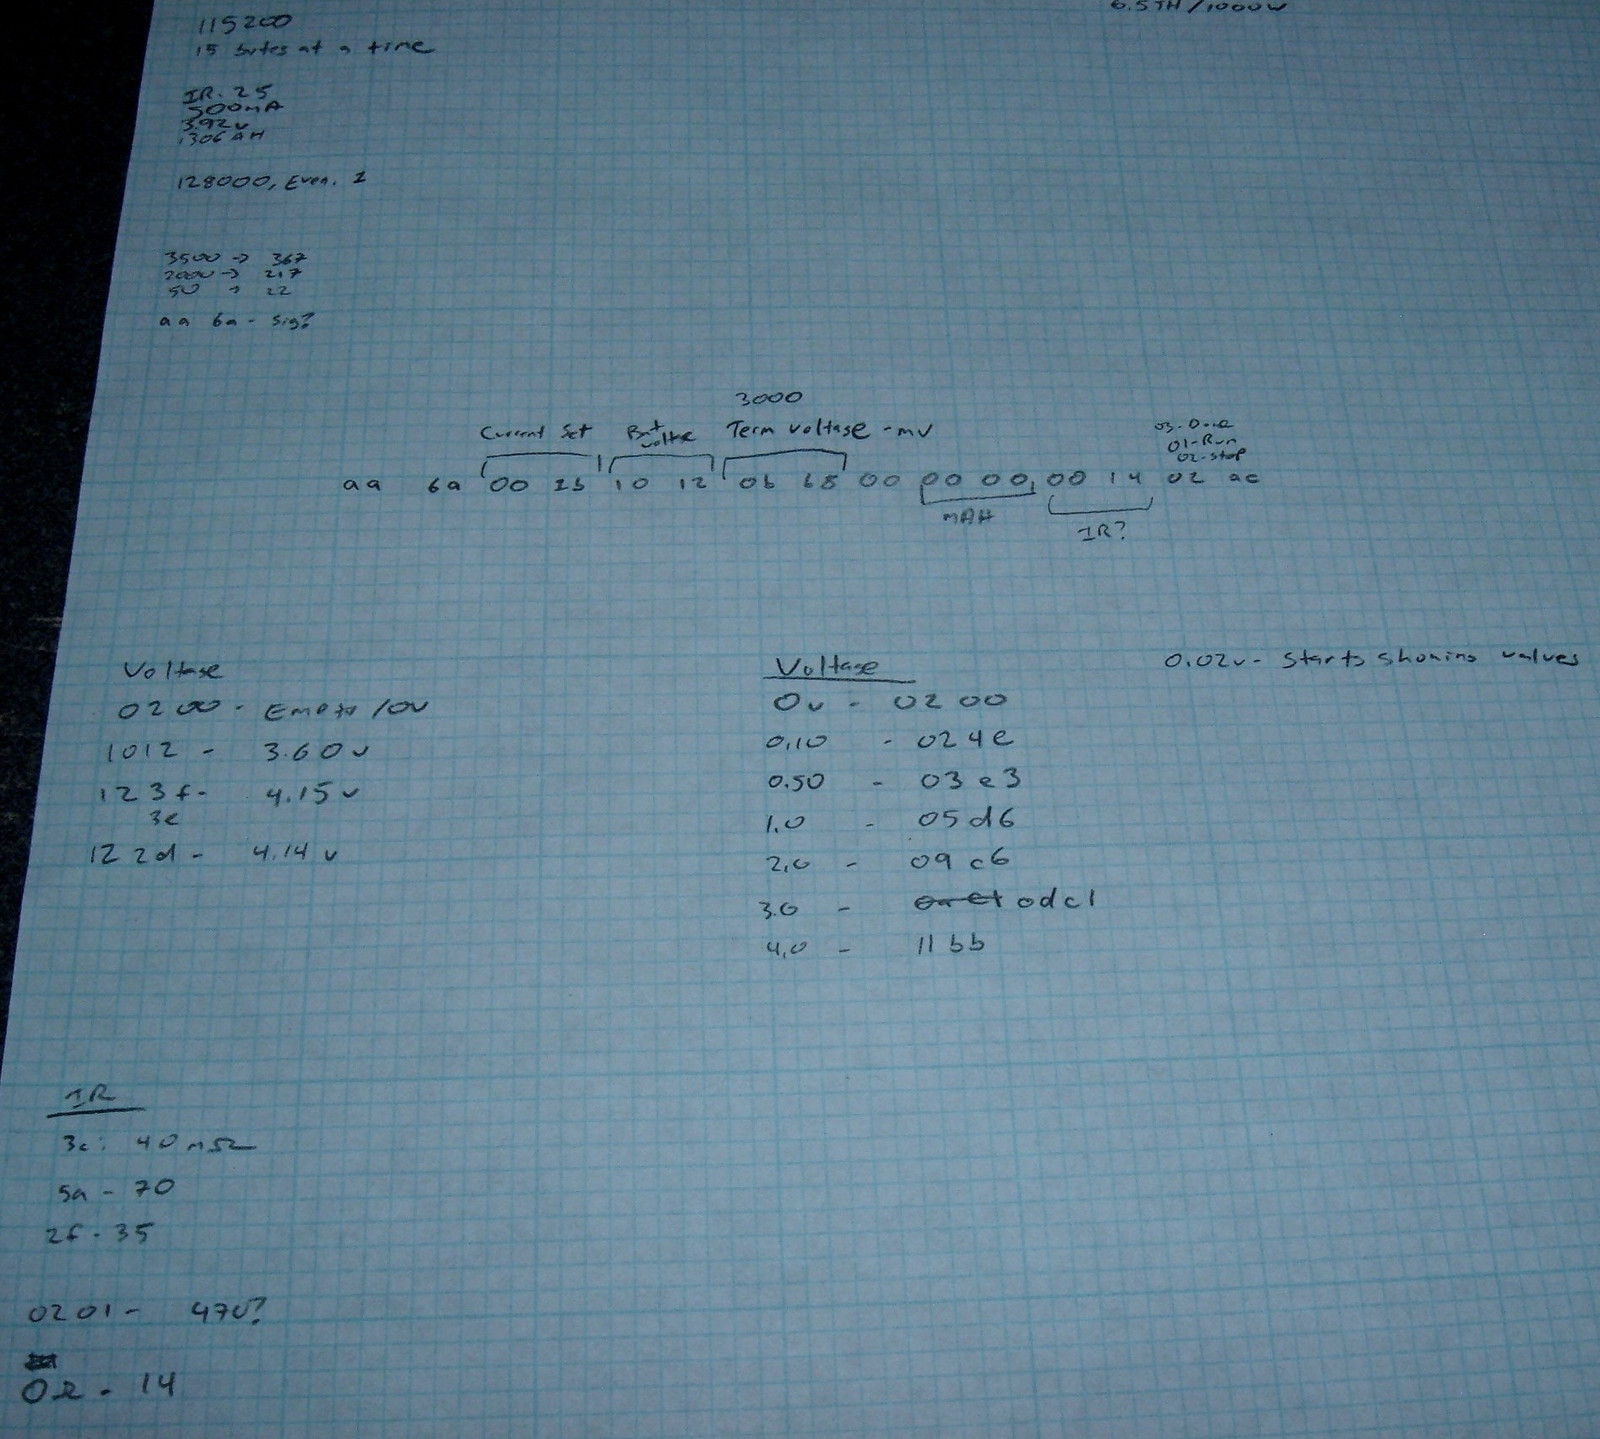 6.5TH/1000W
115200
15 bytes at a time
IR. 25
500mA
3.92v
1306 AH
128000, Even. 1
3500 -> 367
2000 -> 217
50 -> 22
aa 6a - sig?
3000
Current Set
Bat voltge
Term voltage - mv
03-Done
01-Run
02-stop
aa 6a 00 2b 10 12 0b b8 00 00 00 00 14 02 ac
mAH
IR?
Voltage
0200 - Empty /0V
1012 - 3.60v
123f - 4.15v
3e
122d - 4.14v
Voltage
0v - 0200
0.10 - 024e
0.50 - 03e3
1.0 - 05d6
2.0 - 09c6
3.0 - 0dc1
4.0 - 11bb
0.02v - starts showing values
IR
3c: 40mΩ
5a - 70
2f - 35
0201 - 470?
14